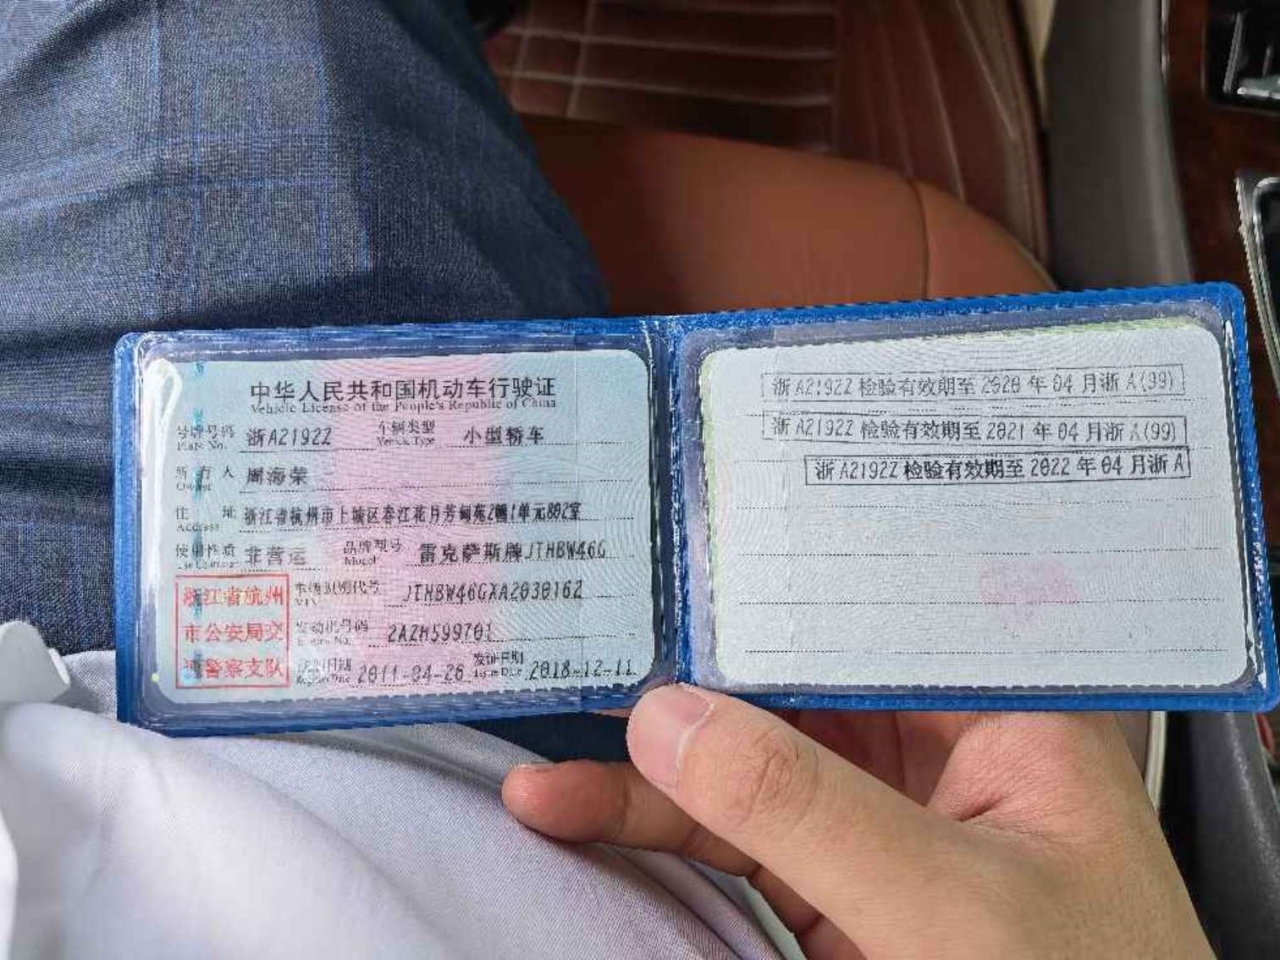 中华人民共和国机动车行驶证
Vehicle License of the People's Republic of China
号牌号码 浙A2192Z 车辆类型 小型轿车
Plate No. Vehicle Type
所有人 周海荣
Owner
住址 浙江省杭州市上城区春江花月芳甸苑2幢1单元802室
Address
使用性质 非营运 品牌型号 雷克萨斯牌JTHBW46G
Use Character Model
浙江省杭州市公安局交通警察支队
车辆识别代号 JTHBW46GXA2030162
VIN
发动机号码 2AZH599701
Engine No.
注册日期 2011-04-26 发证日期 2018-12-11
Register Date Issue Date
浙A2192Z 检验有效期至2020年04月浙A(99)
浙A2192Z 检验有效期至2021年04月浙A(99)
浙A2192Z 检验有效期至2022年04月浙A